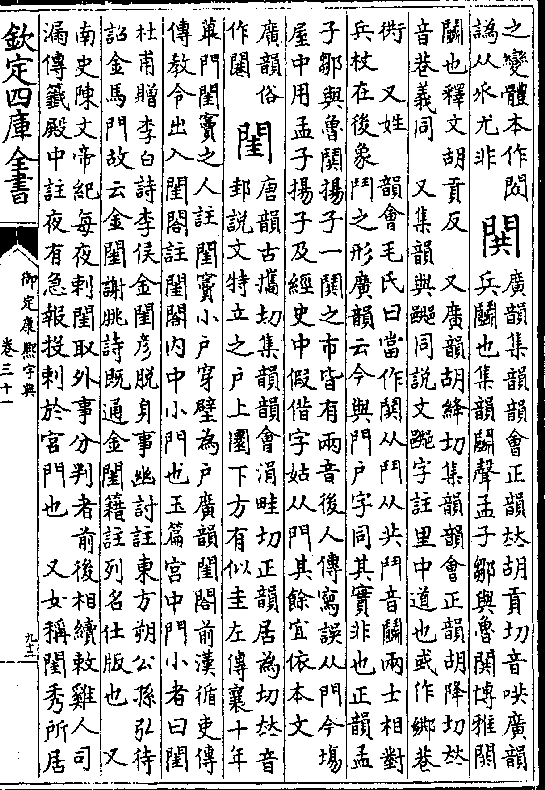 之變體本作
譌从尤非
閧
廣韻集韻韻會正韻𠀤胡貢切音哄廣韻
兵鬭也集韻鬭聲孟子鄒與魯閧博雅閧
鬭也釋文胡貢反　又廣韻胡絳切集韻韻會正韻胡降切𠀤
音巷義同　又集韻與䢽同說文䢽字註里中道也或作鄉巷
衖　又姓　韻會毛氏曰當作鬨从鬥从共鬥音鬭兩士相對
兵杖在後象鬥之形廣韻云今與門戶字同其實非也正韻孟
子鄒與魯閧揚子一閧之市皆有兩音後人傳寫誤从門今塲
屋中用孟子揚子及經史中假借字姑从門其餘宜依本文
廣韻俗
作闀
閨
唐韻古攜切集韻韻會涓畦切正韻居為切𠀤音
邽說文特立之戶上圜下方有似圭左傳襄十年
蓽門閨竇之人註閨竇小戶穿壁為戶廣韻閨閤前漢循吏傳
傳教令出入閨閤註閨閤內中小門也玉篇宮中門小者曰閨
杜甫贈李白詩李侯金閨彥脫身事幽討註東方朔公孫弘待
詔金馬門故云金閨謝朓詩既通金閨籍註列名仕版也　又
南史陳文帝紀每夜刺閨取外事分判者前後相續敕雞人司
漏傳籤殿中註夜有急報投刺於宮門也　又女稱閨秀所居
欽定四庫全書
御定康熙字典
卷三十一